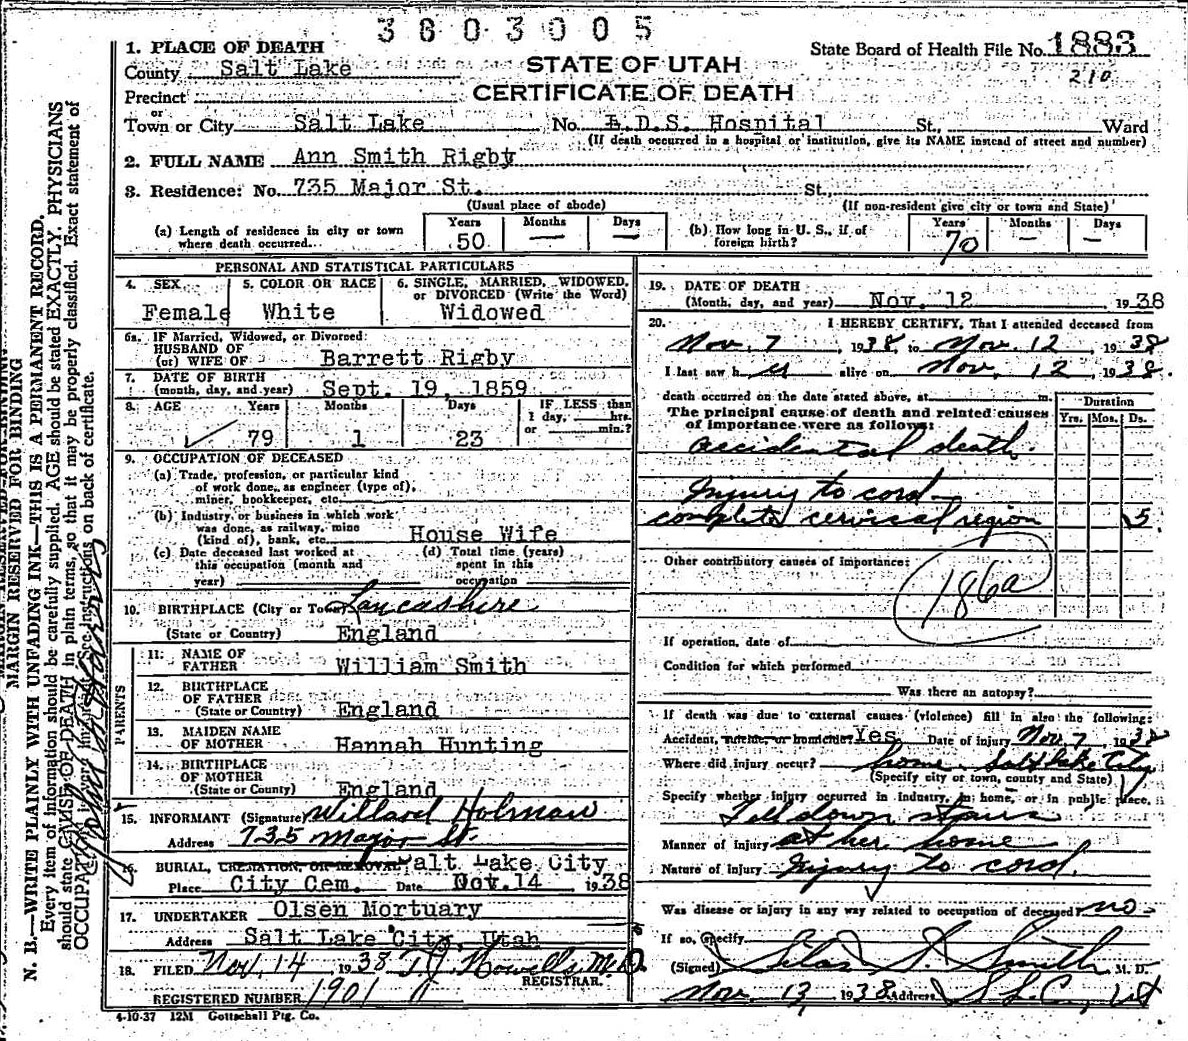 3803005
1. PLACE OF DEATH
State Board of Health File No. 1883
County Salt Lake
STATE OF UTAH
210
Precinct
CERTIFICATE OF DEATH
or
Town or City Salt Lake No. L.D.S. Hospital St., Ward
(If death occurred in a hospital or institution, give its NAME instead of street and number)
2. FULL NAME Ann Smith Rigby
3. Residence: No. 735 Major St. St.
(Usual place of abode) (If non-resident give city or town and State)
(a) Length of residence in city or town where death occurred... Years 50 Months — Days —
(b) How long in U. S., if of foreign birth? Years 70 Months — Days —
PERSONAL AND STATISTICAL PARTICULARS
4. SEX 5. COLOR OR RACE 6. SINGLE, MARRIED, WIDOWED, or DIVORCED (Write the Word)
Female White Widowed
6a. IF Married, Widowed, or Divorced
HUSBAND OF
(or) WIFE OF Barrett Rigby
7. DATE OF BIRTH
(month, day, and year) Sept. 19, 1859
8. AGE Years Months Days IF LESS than
1 day, hrs.
or min.?
79 1 23
9. OCCUPATION OF DECEASED
(a) Trade, profession, or particular kind
of work done, as engineer (type of),
miner, bookkeeper, etc.
(b) Industry or business in which work
was done, as railway, mine
(kind of), bank, etc. House Wife
(c) Date deceased last worked at
this occupation (month and
year)
(d) Total time (years)
spent in this
occupation
10. BIRTHPLACE (City or Town) Lancashire
(State or Country) England
PARENTS
11. NAME OF
FATHER William Smith
12. BIRTHPLACE
OF FATHER
(State or Country) England
13. MAIDEN NAME
OF MOTHER Hannah Hunting
14. BIRTHPLACE
OF MOTHER
(State or Country) England
15. INFORMANT (Signature) Willard Holman
Address 735 Major St.
16. BURIAL, CREMATION, OR REMOVAL Salt Lake City
Place City Cem. Date Nov. 14 1938
17. UNDERTAKER Olsen Mortuary
Address Salt Lake City, Utah
18. FILED Nov. 14 1938 T. J. Howells M.D.
REGISTRAR.
REGISTERED NUMBER 1901
4-10-37 12M Gottschall Ptg. Co.
19. DATE OF DEATH
(Month, day, and year) Nov. 12 1938
20. I HEREBY CERTIFY, That I attended deceased from
Nov. 7, 1938, to Nov. 12 1938
I last saw her alive on Nov. 12, 1938.
death occurred on the date stated above, at m.
The principal cause of death and related causes
of importance were as follows:
Duration
Yrs. Mos. Ds.
accidental death.
Injury to cord—
complete cervical region 5
Other contributory causes of importance:
186a
If operation, date of
Condition for which performed
Was there an autopsy?
If death was due to external causes (violence) fill in also the following:
Accident, suicide, or homicide? Yes. Date of injury Nov. 7, 1938
Where did injury occur? home, Salt Lake City
(Specify city or town, county and State)
Specify whether injury occurred in Industry, in home, or in public place,
Fell down stairs
Manner of injury at her home
Nature of injury Injury to cord.
Was disease or injury in any way related to occupation of deceased? no—
If so, specify
(Signed) Silas S. Smith M. D.
Nov. 13, 1938 Address S L C, Ut
MARGIN RESERVED FOR BINDING
N. B.—WRITE PLAINLY WITH UNFADING INK—THIS IS A PERMANENT RECORD.
Every item of information should be carefully supplied. AGE should be stated EXACTLY. PHYSICIANS
should state CAUSE OF DEATH in plain terms, so that it may be properly classified. Exact statement of
OCCUPATION is very important. See instructions on back of certificate.